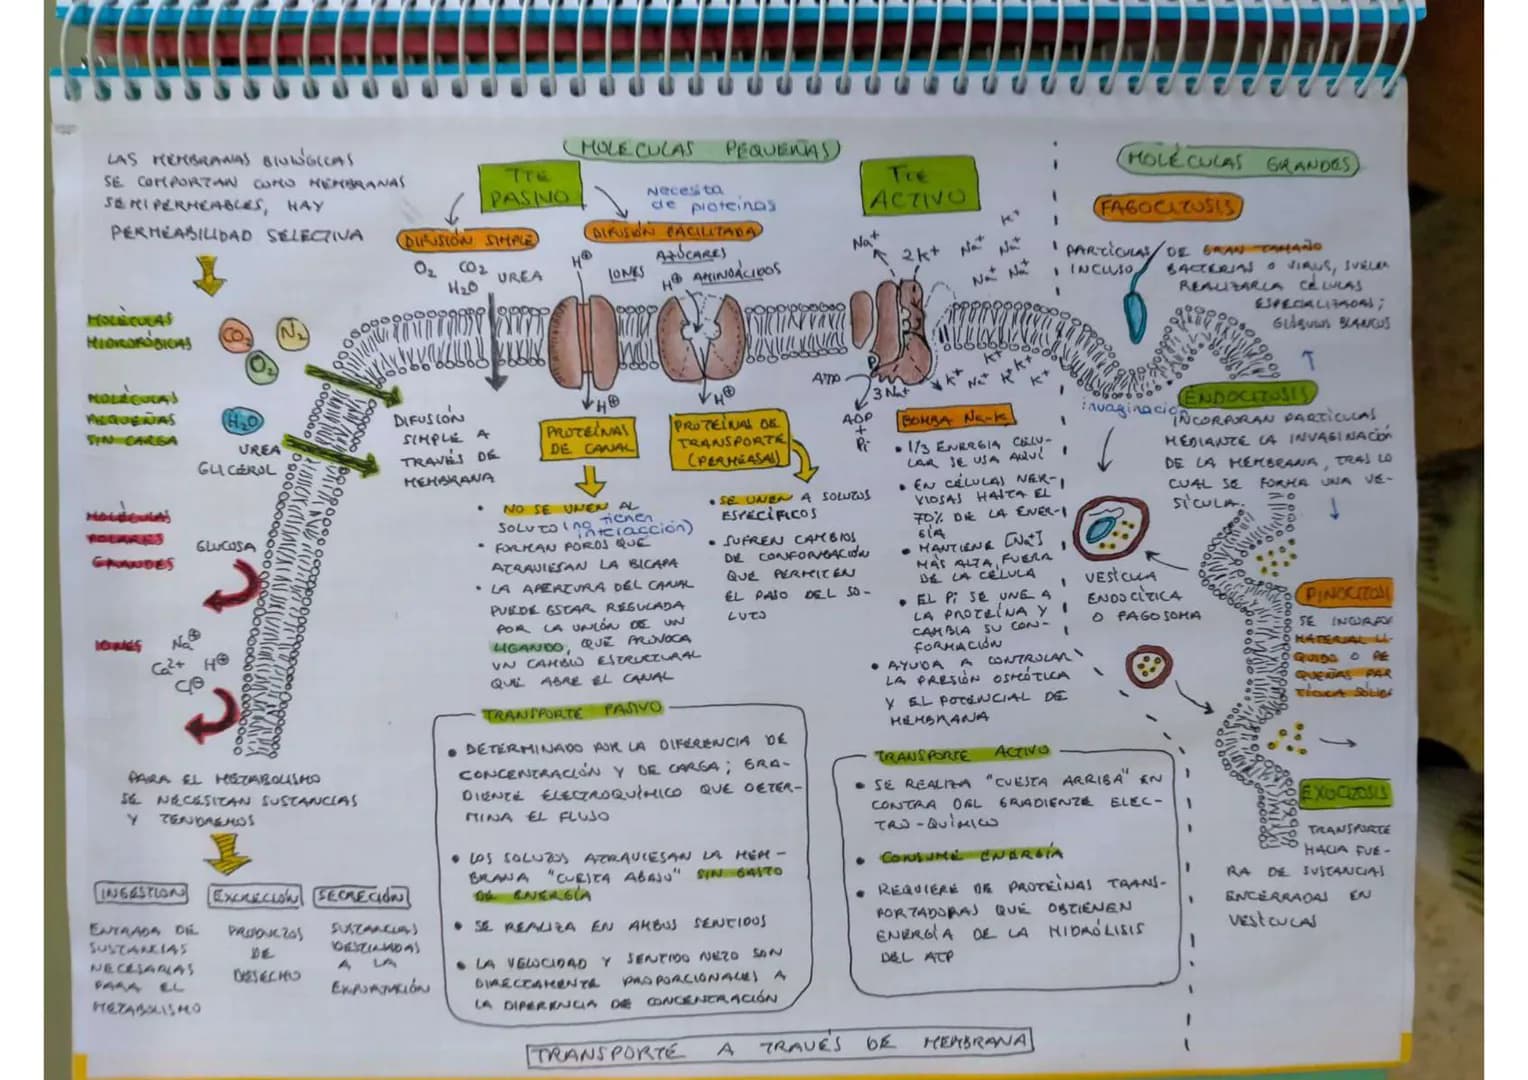 LAS MEMBRANAS BIOLÓGICAS
SE COMPORTAN COMO MEMBRANAS
SEMIPERMEABLES, HAY
PERMEABILIDAD SELECTIVA
MOLÉCULAS
HIDROFÓBICAS
CO2
N2
O2
MOLÉCULAS
PEQUEÑAS
SIN CARGA
H2O
UREA
GLICEROL
MOLÉCULAS
POLARES
GRANDES
GLUCOSA
IONES
Na⊕
Ca2+ H⊕
Cl⊖
PARA EL METABOLISMO
SE NECESITAN SUSTANCIAS
Y TENDREMOS
INGESTION
ENTRADA DE
SUSTANCIAS
NECESARIAS
PARA EL
METABOLISMO
EXCRECIÓN
PRODUCTOS
DE
DESECHO
SECRECIÓN
SUSTANCIAS
DESTINADAS
A LA
EXPORTACIÓN
MOLÉCULAS PEQUEÑAS
TTE
PASIVO
Necesita
de proteínas
DIFUSIÓN SIMPLE
O2 CO2 UREA
H2O
DIFUSIÓN
SIMPLE A
TRAVÉS DE
MEMBRANA
DIFUSIÓN FACILITADA
H⊕
IONES
AZÚCARES
H⊕ AMINOÁCIDOS
H⊕
H⊕
PROTEÍNAS
DE CANAL
• NO SE UNEN AL
SOLUTO (no tienen
interacción)
• FORMAN POROS QUE
ATRAVIESAN LA BICAPA
• LA APERTURA DEL CANAL
PUEDE ESTAR REGULADA
POR LA UNIÓN DE UN
LIGANDO, QUE PROVOCA
UN CAMBIO ESTRUCTURAL
QUE ABRE EL CANAL
PROTEÍNAS DE
TRANSPORTE
(PERMEASAS)
• SE UNEN A SOLUTOS
ESPECÍFICOS
• SUFREN CAMBIOS
DE CONFORMACIÓN
QUE PERMITEN
EL PASO DEL SO-
LUTO
TTE
ACTIVO
Na+
2K+
K+
Na+ Na+
Na+ Na+
P
ATP
3 Na+
ADP
+
Pi
K+
K+ Na+ K+ K+
K+
BOMBA Na-K
• 1/3 ENERGIA CELU-
LAR SE USA AQUÍ
• EN CÉLULAS NER-
VIOSAS HASTA EL
70% DE LA ENER-
GÍA
• MANTIENE [Na+]
MÁS ALTA FUERA
DE LA CÉLULA
• EL Pi SE UNE A
LA PROTEÍNA Y
CAMBIA SU CON-
FORMACIÓN
• AYUDA A CONTROLAR
LA PRESIÓN OSMÓTICA
Y EL POTENCIAL DE
MEMBRANA
TRANSPORTE PASIVO
• DETERMINADO POR LA DIFERENCIA DE
CONCENTRACIÓN Y DE CARGA; GRA-
DIENTE ELECTROQUÍMICO QUE DETER-
MINA EL FLUJO
• LOS SOLUTOS ATRAVIESAN LA MEM-
BRANA "CUESTA ABAJO" SIN GASTO
DE ENERGÍA
• SE REALIZA EN AMBOS SENTIDOS
• LA VELOCIDAD Y SENTIDO NETO SON
DIRECTAMENTE PROPORCIONALES A
LA DIFERENCIA DE CONCENTRACIÓN
TRANSPORTE ACTIVO
• SE REALIZA "CUESTA ARRIBA" EN
CONTRA DEL GRADIENTE ELEC-
TRO-QUÍMICO
• CONSUME ENERGÍA
• REQUIERE DE PROTEÍNAS TRANS-
PORTADORAS QUE OBTIENEN
ENERGÍA DE LA HIDRÓLISIS
DEL ATP
MOLÉCULAS GRANDES
FAGOCITOSIS
PARTÍCULAS DE GRAN TAMAÑO
INCLUSO BACTERIAS O VIRUS, SUELEN
REALIZARLA CÉLULAS
ESPECIALIZADAS;
GLÓBULOS BLANCOS
invaginación
ENDOCITOSIS
INCORPORAN PARTÍCULAS
MEDIANTE LA INVAGINACIÓN
DE LA MEMBRANA, TRAS LO
CUAL SE FORMA UNA VE-
SÍCULA.
VESÍCULA
ENDOCÍTICA
O FAGOSOMA
PINOCITOSI
SE INCORPOR
MATERIAL LÍ-
QUIDO O PE
QUEÑAS PAR
TÍCULA SÓLIDA
EXOCITOSIS
TRANSPORTE
HACIA FUE-
RA DE SUSTANCIAS
ENCERRADAS EN
VESÍCULAS
TRANSPORTE A TRAVÉS DE MEMBRANA